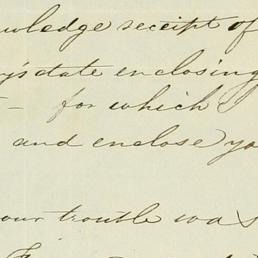 wledge receipt of
y's date enclosing
- for which I
and enclose yo
our trouble was